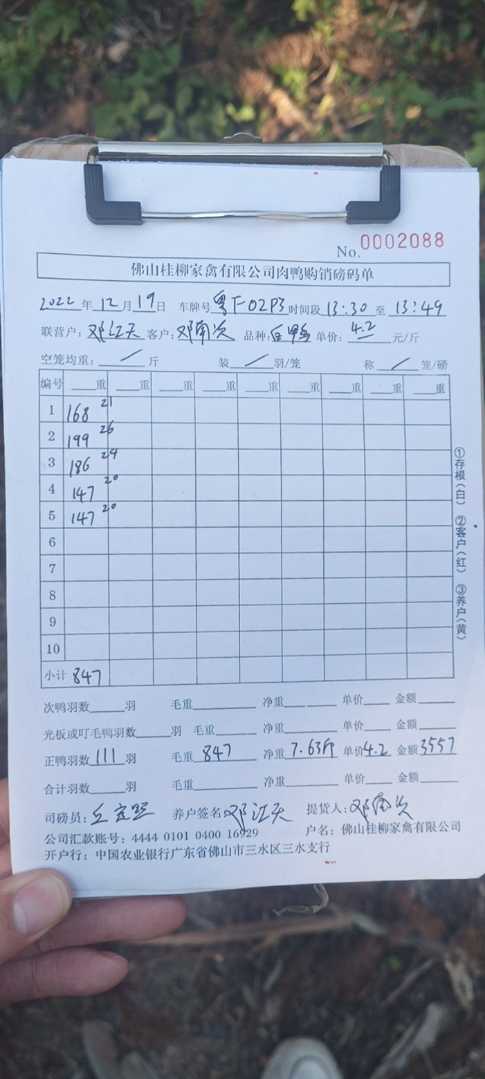 No. 0002088
佛山桂柳家禽有限公司肉鸭购销磅码单
2022年12月19日 车牌号粤F-02P3时间段13:30至13:49
联营户:邓江天 客户:邓南次 品种:白鸭 单价:4.2元/斤
空笼均重:/斤 装/羽/笼 称/笼/磅
编号 重 重 重 重 重 重 重 重 重
1 168 21
2 199 26
3 186 24
4 147 20
5 147 20
6
7
8
9
10
小计 847
①存根(白) ②客户(红) ③养户(黄)
次鸭羽数 羽 毛重 净重 单价 金额
光板或叮毛鸭羽数 羽 毛重 净重 单价 金额
正鸭羽数 111 羽 毛重 847 净重 7.63斤 单价4.2 金额3557
合计羽数 羽 毛重 净重 单价 金额
司磅员: 养户签名:邓江天 提货人:邓南次
公司汇款账号:4444 0101 0400 16929 户名:佛山桂柳家禽有限公司
开户行:中国农业银行广东省佛山市三水区三水支行